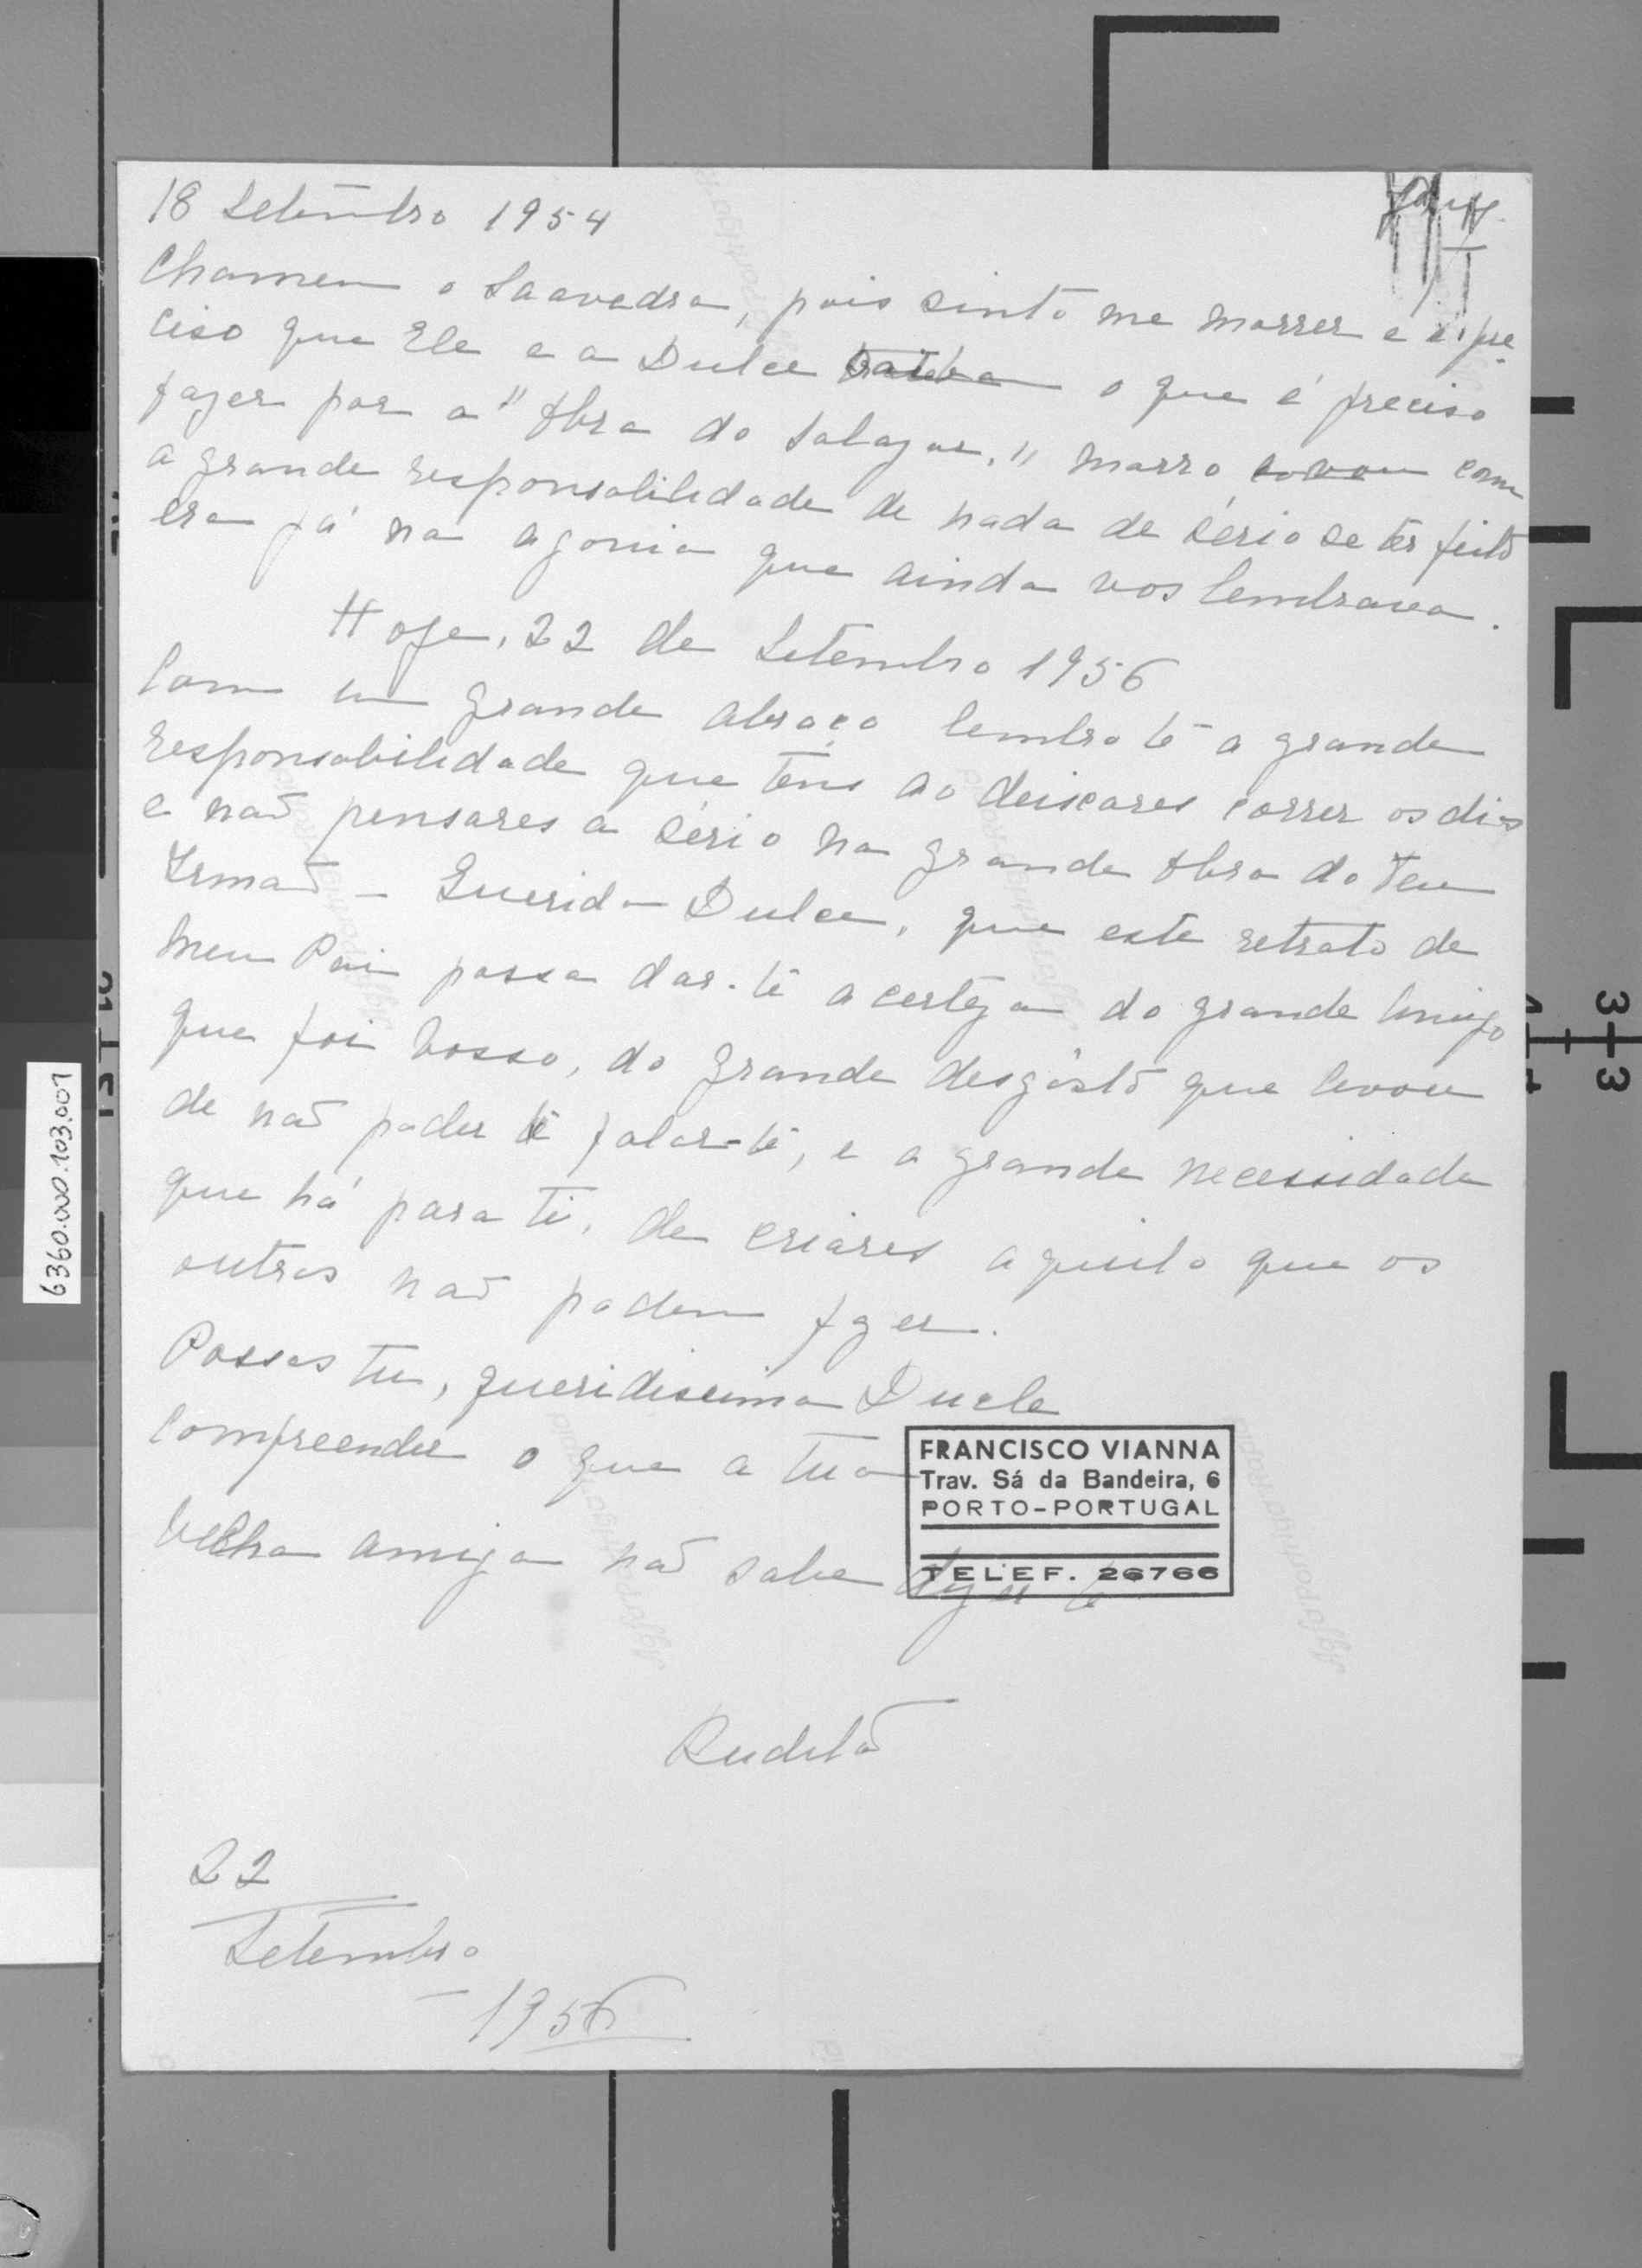 18 Setembro 1954
Chamem o Saavedra, pois sinto me morrer e é pre
ciso que Ele e a Dulce saiba o que é preciso
fazer por a "Obra do Salazar." Morro com
a grande responsabilidade de nada de sério se ter feito
era já na agonia que ainda vos lembrava.
Hoje, 22 de Setembro 1956
Com um grande abraço lembro te a grande
responsabilidade que tens ao deixares correr os dias
e não pensares a sério na grande Obra do Teu
Irmão - Querida Dulce, que este retrato de
Meu Pai possa dar-te a certeza do grande Amigo
que foi Vosso, do grande desgôsto que levou
de não poder falar-te, e a grande necessidade
que há para Ti, de criares aquilo que os
outros não podem fzer.
Possas Tu, queridissima Ducle
compreender o que a tua
velha amiga não sabe dizer te
FRANCISCO VIANNA
Trav. Sá da Bandeira, 6
PORTO-PORTUGAL
TELEF. 26766
22
Setembro
- 1956
6360.000.103.001
3 3